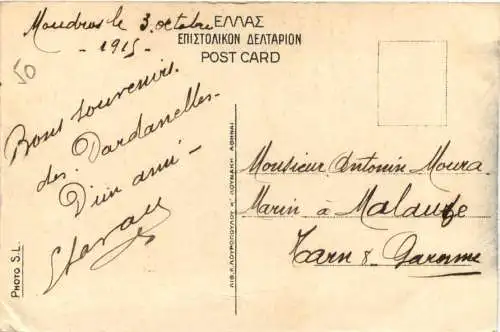 Moudros le 3 octobre
- 1915 -
ΕΛΛΑΣ
ΕΠΙΣΤΟΛΙΚΟΝ ΔΕΛΤΑΡΙΟΝ
POST CARD
50
Bons souvenirs
des Dardanelles -
D'un ami -
Monsieur Antonin Moura
Marin à Malause
Tarn & Garonne
PHOTO S.L.
ΛΙΘ. Κ. ΛΟΥΡΟΠΟΥΛΟΥ Κ' ΛΟΥΝΑΚΗ ΑΘΗΝΑΙ